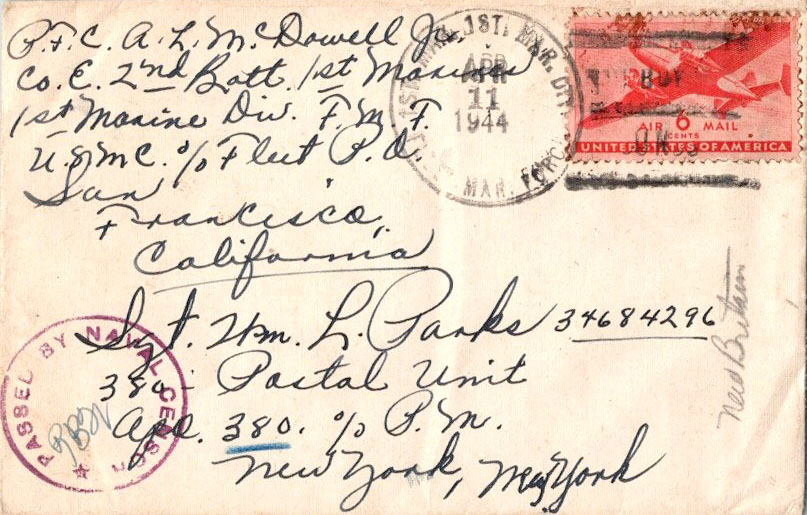 P.F.C. A. L. McDowell Jr.
Co. E. 2nd Batt. 1st Marines
1st Marine Div. F. M. F.
U.S.M.C. % Fleet P.O.
San
Francisco,
California
1ST. MAR. DIV.
APR
11
1944
MAR. FORCE
BUY
6
CENTS
AIR MAIL
UNITED STATES OF AMERICA
Sgt. Wm. L. Parks 34684296
380 Postal Unit
Apo. 380. % P.M.
New York, New York
PASSED BY NAVAL CENSOR
New Britain